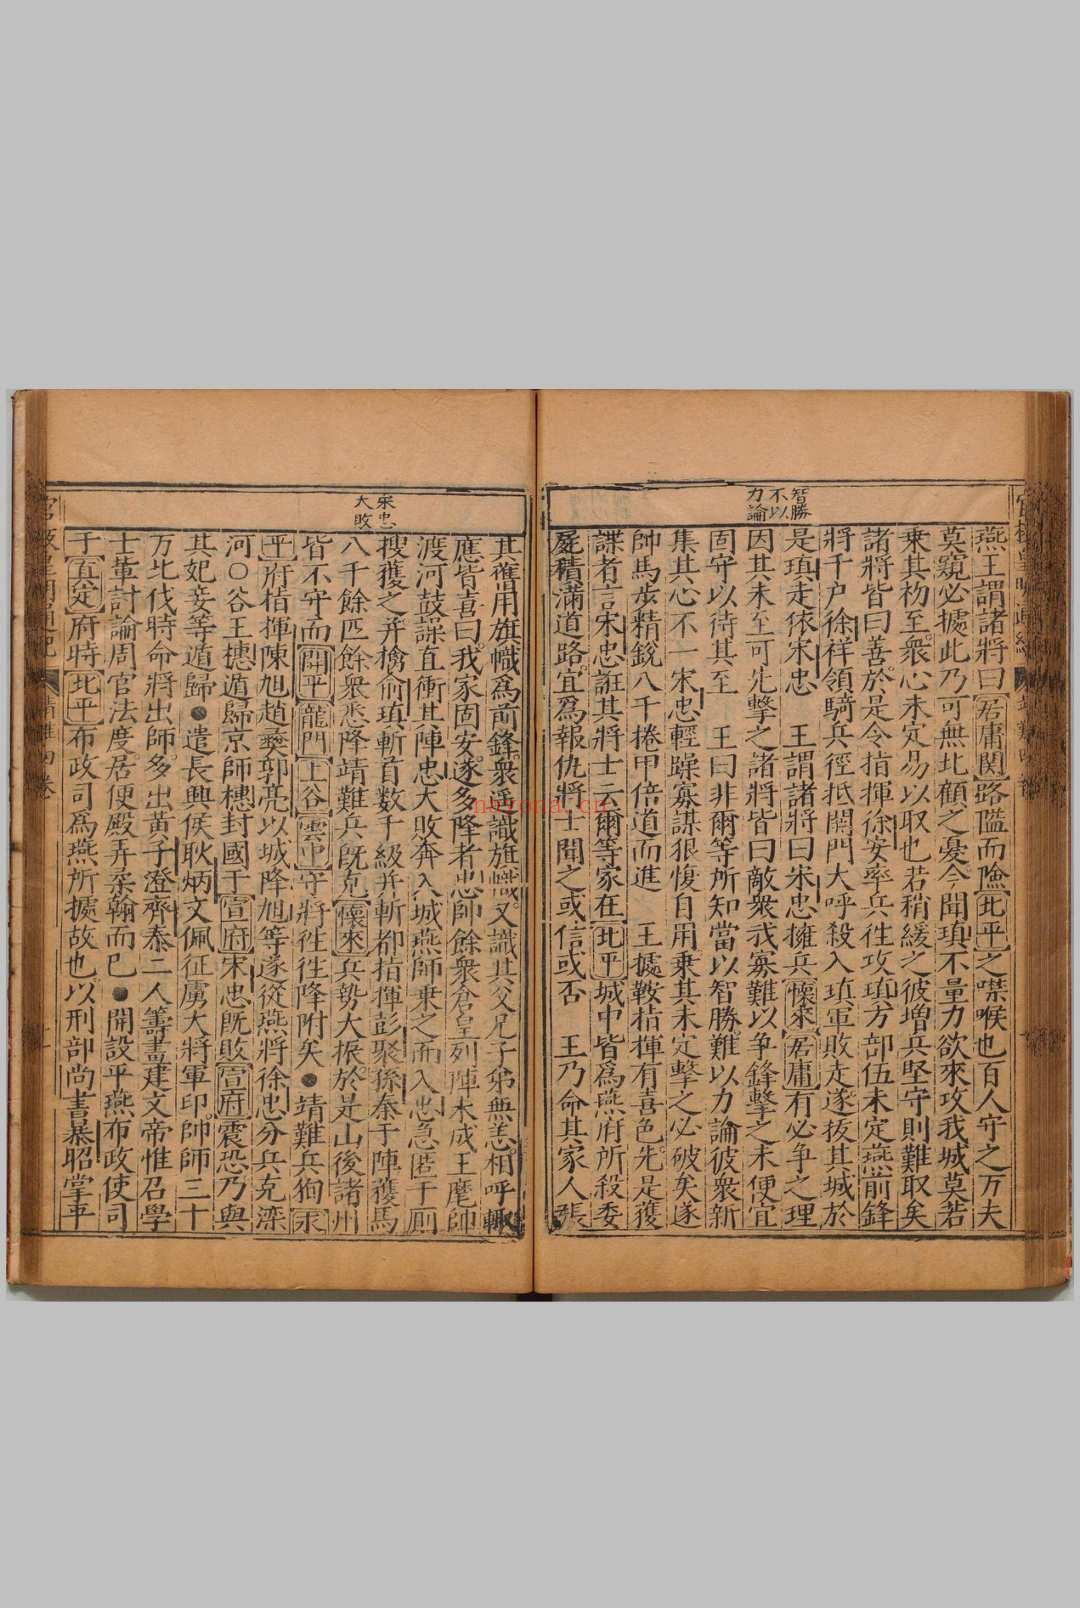 智勝
不以
力論
燕王謂諸將曰居庸関路隘而險北平之襟喉也百人守之万夫
莫窺必據此乃可無北顧之憂今聞瑱不量力欲來攻我城莫若
乗其初至衆心未定易以取也若稍緩之彼增兵堅守則難取矣
諸將皆曰善於是令指揮徐安率兵徃攻瑱方部伍未定燕前鋒
將千户徐祥領騎兵徑抵関門大呼殺入瑱軍敗走遂拔其城於
是瑱走依宋忠 王謂諸將曰宋忠擁兵懷來居庸有必争之理
因其未至可先擊之諸將皆曰敵衆我寡難以争鋒擊之未便宜
固守以待其至 王曰非爾等所知當以智勝難以力論彼衆新
集其心不一宋忠輕躁寡謀狠愎自用乗其未定擊之必破矣遂
帥馬歩精銳八千捲甲倍道而進 王據鞍指揮有喜色先是獲
諜者言宋忠誑其將士云爾等家在北平城中皆爲燕府所殺委
屍積滿道路宜爲報仇將士聞之或信或否 王乃命其家人張
宋忠
大敗
其舊用旗幟爲前鋒衆遥識旗幟又識其父兄子弟無恙相呼輙
應皆喜曰我家固安遂多降者忠帥餘衆倉皇列陣未成王麾師
渡河鼓譟直衝其陣忠大敗奔入城燕師乗之而入忠急匿于厠
搜獲之并擒俞瑱斬首数千級并斬都指揮彭聚孫泰于陣獲馬
八千餘匹餘衆悉降靖難兵既克懷來兵勢大振於是山後諸州
皆不守而開平龍門上谷雲中守將徃徃降附矣●靖難兵徇永
平府指揮陳旭趙彛郭亮以城降旭等遂從燕將徐忠分兵克灤
河○谷王橞遁歸京師橞封國于宣府宋忠既敗宣府震恐乃與
其妃妾等遁歸●遣長興侯耿炳文佩征虜大將軍印帥師三十
万北伐時命將出師多出黄子澄齊泰二人籌畫建文帝惟召學
士軰討論周官法度居便殿弄柔翰而已●開設平燕布政使司
于真定府時北平布政司爲燕所據故也以刑部尚書暴昭掌平